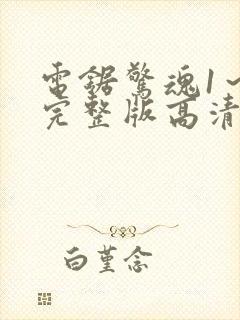 電鋸驚魂1~
完整版高清
白堇念